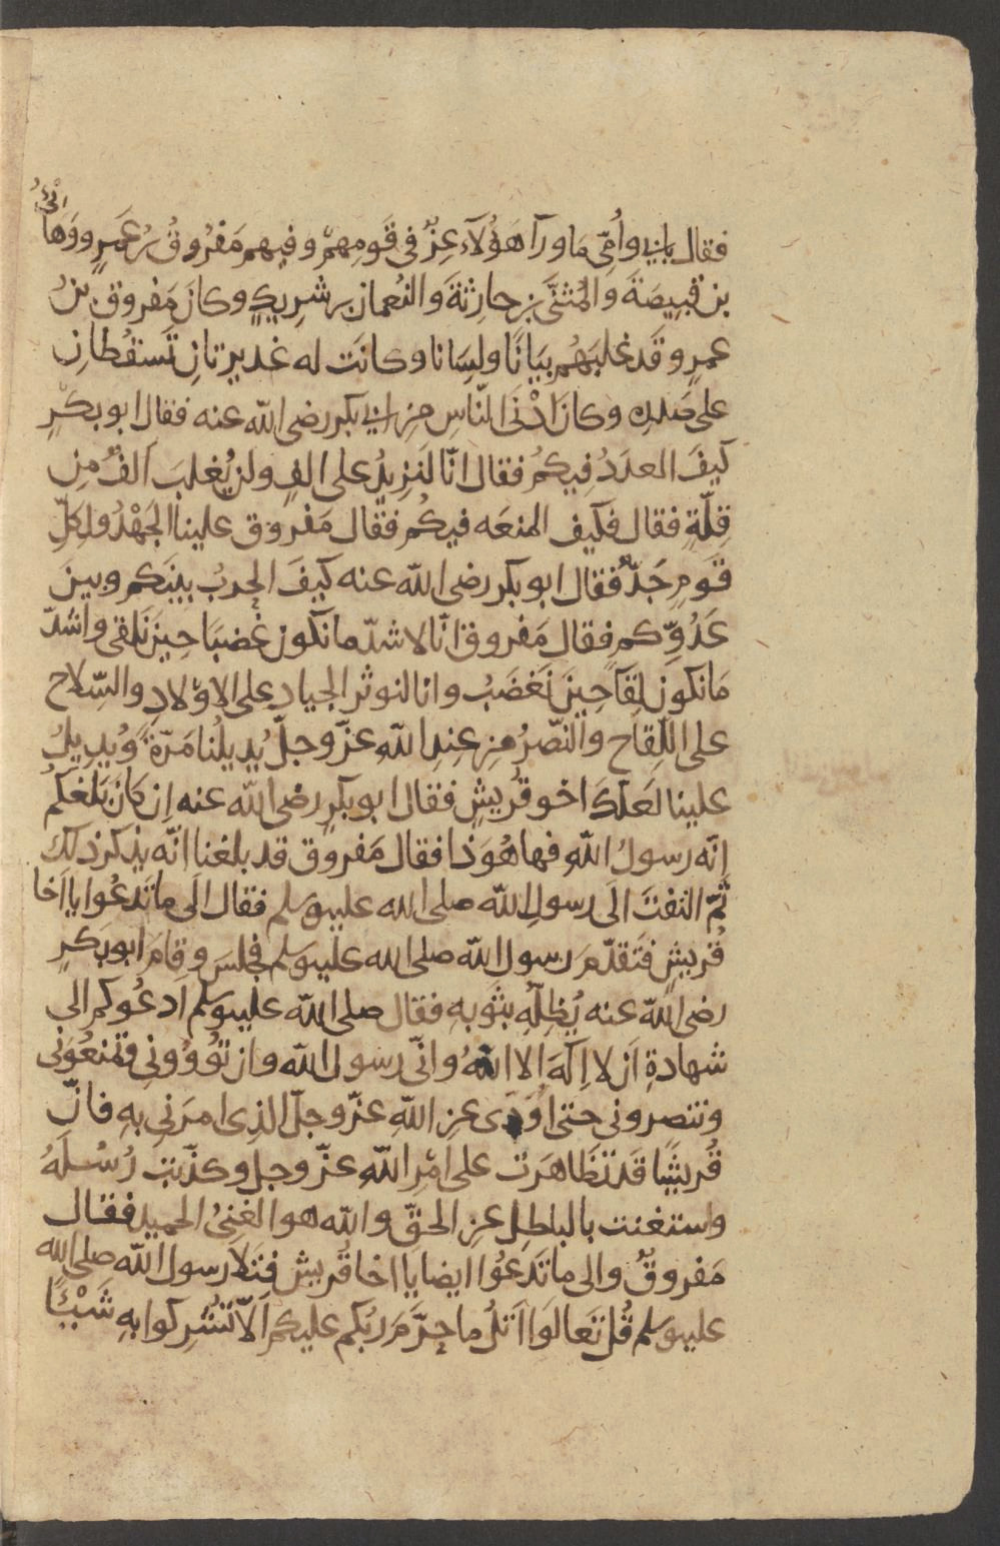 فقال بابي وأُمّي مَا ورآ هَؤُلآء عِزٌ في قَومِهمْ وفيهم مَفرُوقُ بنُ عَمرٍو وَهَانئُ
بن قبيصَةَ والمُثنَّى بن حارِثةَ والنُعمان بن شرِيكٍ وكانَ مَفروق بنُ
عمرٍو قَد غلبَهُم بيَانًا ولسَانا وكانَت له غديرتانِ تَسقُطانِ
على صَدرِه وكانَ ادْنَى النّاسِ من ابي بكر رضى الله عنه فقال ابو بكْرٍ
كيفَ العدَدُ فيكمُ فقال انّا لَنزِيدُ على الفٍ ولن يُغلبَ اَلفٌ مِن
قِلّةٍ فقال فكيف المنعَه فيكُم فقال مَفروق علينا الجَهْدُ ولكلِّ
قَومٍ جَدٌّ فقال ابو بكر رضى الله عنه كيفَ الحربُ بينَكم وبينَ
عَدُوِّكم فقال مَفروق انّا لاشدّ ما نكون غضبَا حينَ نَلقى واشدّ
مَا نكون لِقَآ حينَ نَغضَبُ وانا لنوثر الجيادِ على الاوْلادِ والسّلاح
على اللِّقاح والنّصرُ من عِندِ اللهِ عزّ وجلّ يُديلُنا مَرّةً وُيدِيلُ
علينا لَعَلّكَ اخو قُريشٍ فقال ابو بكرٍ رضى الله عنه إن كانَ بَلغكُم
انّه رسولُ اللهِ فها هُوَ ذا فقال مَفروق قد بلغنا انّه يذكر ذلكَ
ثُمّ التفتَ الَى رسولِ الله صلى الله عليه وسلم فقال الَى ما تَدعُوا يا اَخا
قُريشٍ فتَقدّمَ رسول الله صلى الله عليه وسلم فجلسَ وقامَ ابو بَكرٍ
رضى الله عنه يُظِلُّه بثَوبهِ فقال صلى الله عليه وسلم ادعُوكم الى
شهادةِ اَن لا اِلَهَ الا اللهُ وانّي رسُول الله وان تؤْووني وتمنعُونى
وتنصرونى حتى اُوَدّى عن اللهِ عزّ وجلّ الذِى امرَنى بهِ فانّ
قُريشًا قَد تظَاهَرَت على امْرِ اللهِ عزّ وجل وكذّبت رُسُلَهُ
واستغنت بالباطِلِ عنِ الحقّ والله هو الغنِىُ الحميد فقال
مَفروقٌ والى ما تَدعُوا ايضا يا اخا قُريش فَتَلا رسول الله صلى الله
عليه وسلم قُل تعَالَوا اَتلُ ما حرّمَ رَبُكم عليكم اَلّا تُشرِكوا بهِ شَيْئًا